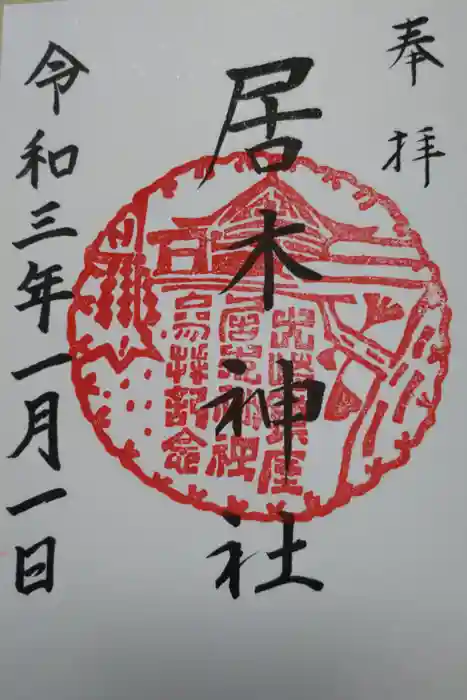 奉拝
居木神社
令和三年一月一日